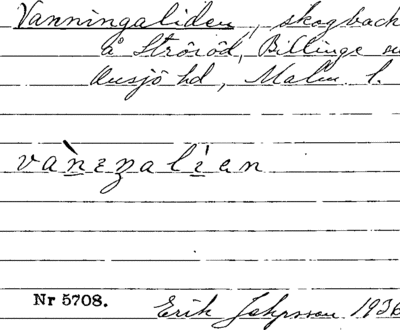 Vanningaliden, skogback
å Ströröd, Billinge
Onsjö hd, Malm. l.
vànɛŋalíɛn
Nr 5708.
Erik Jeppsson 1936